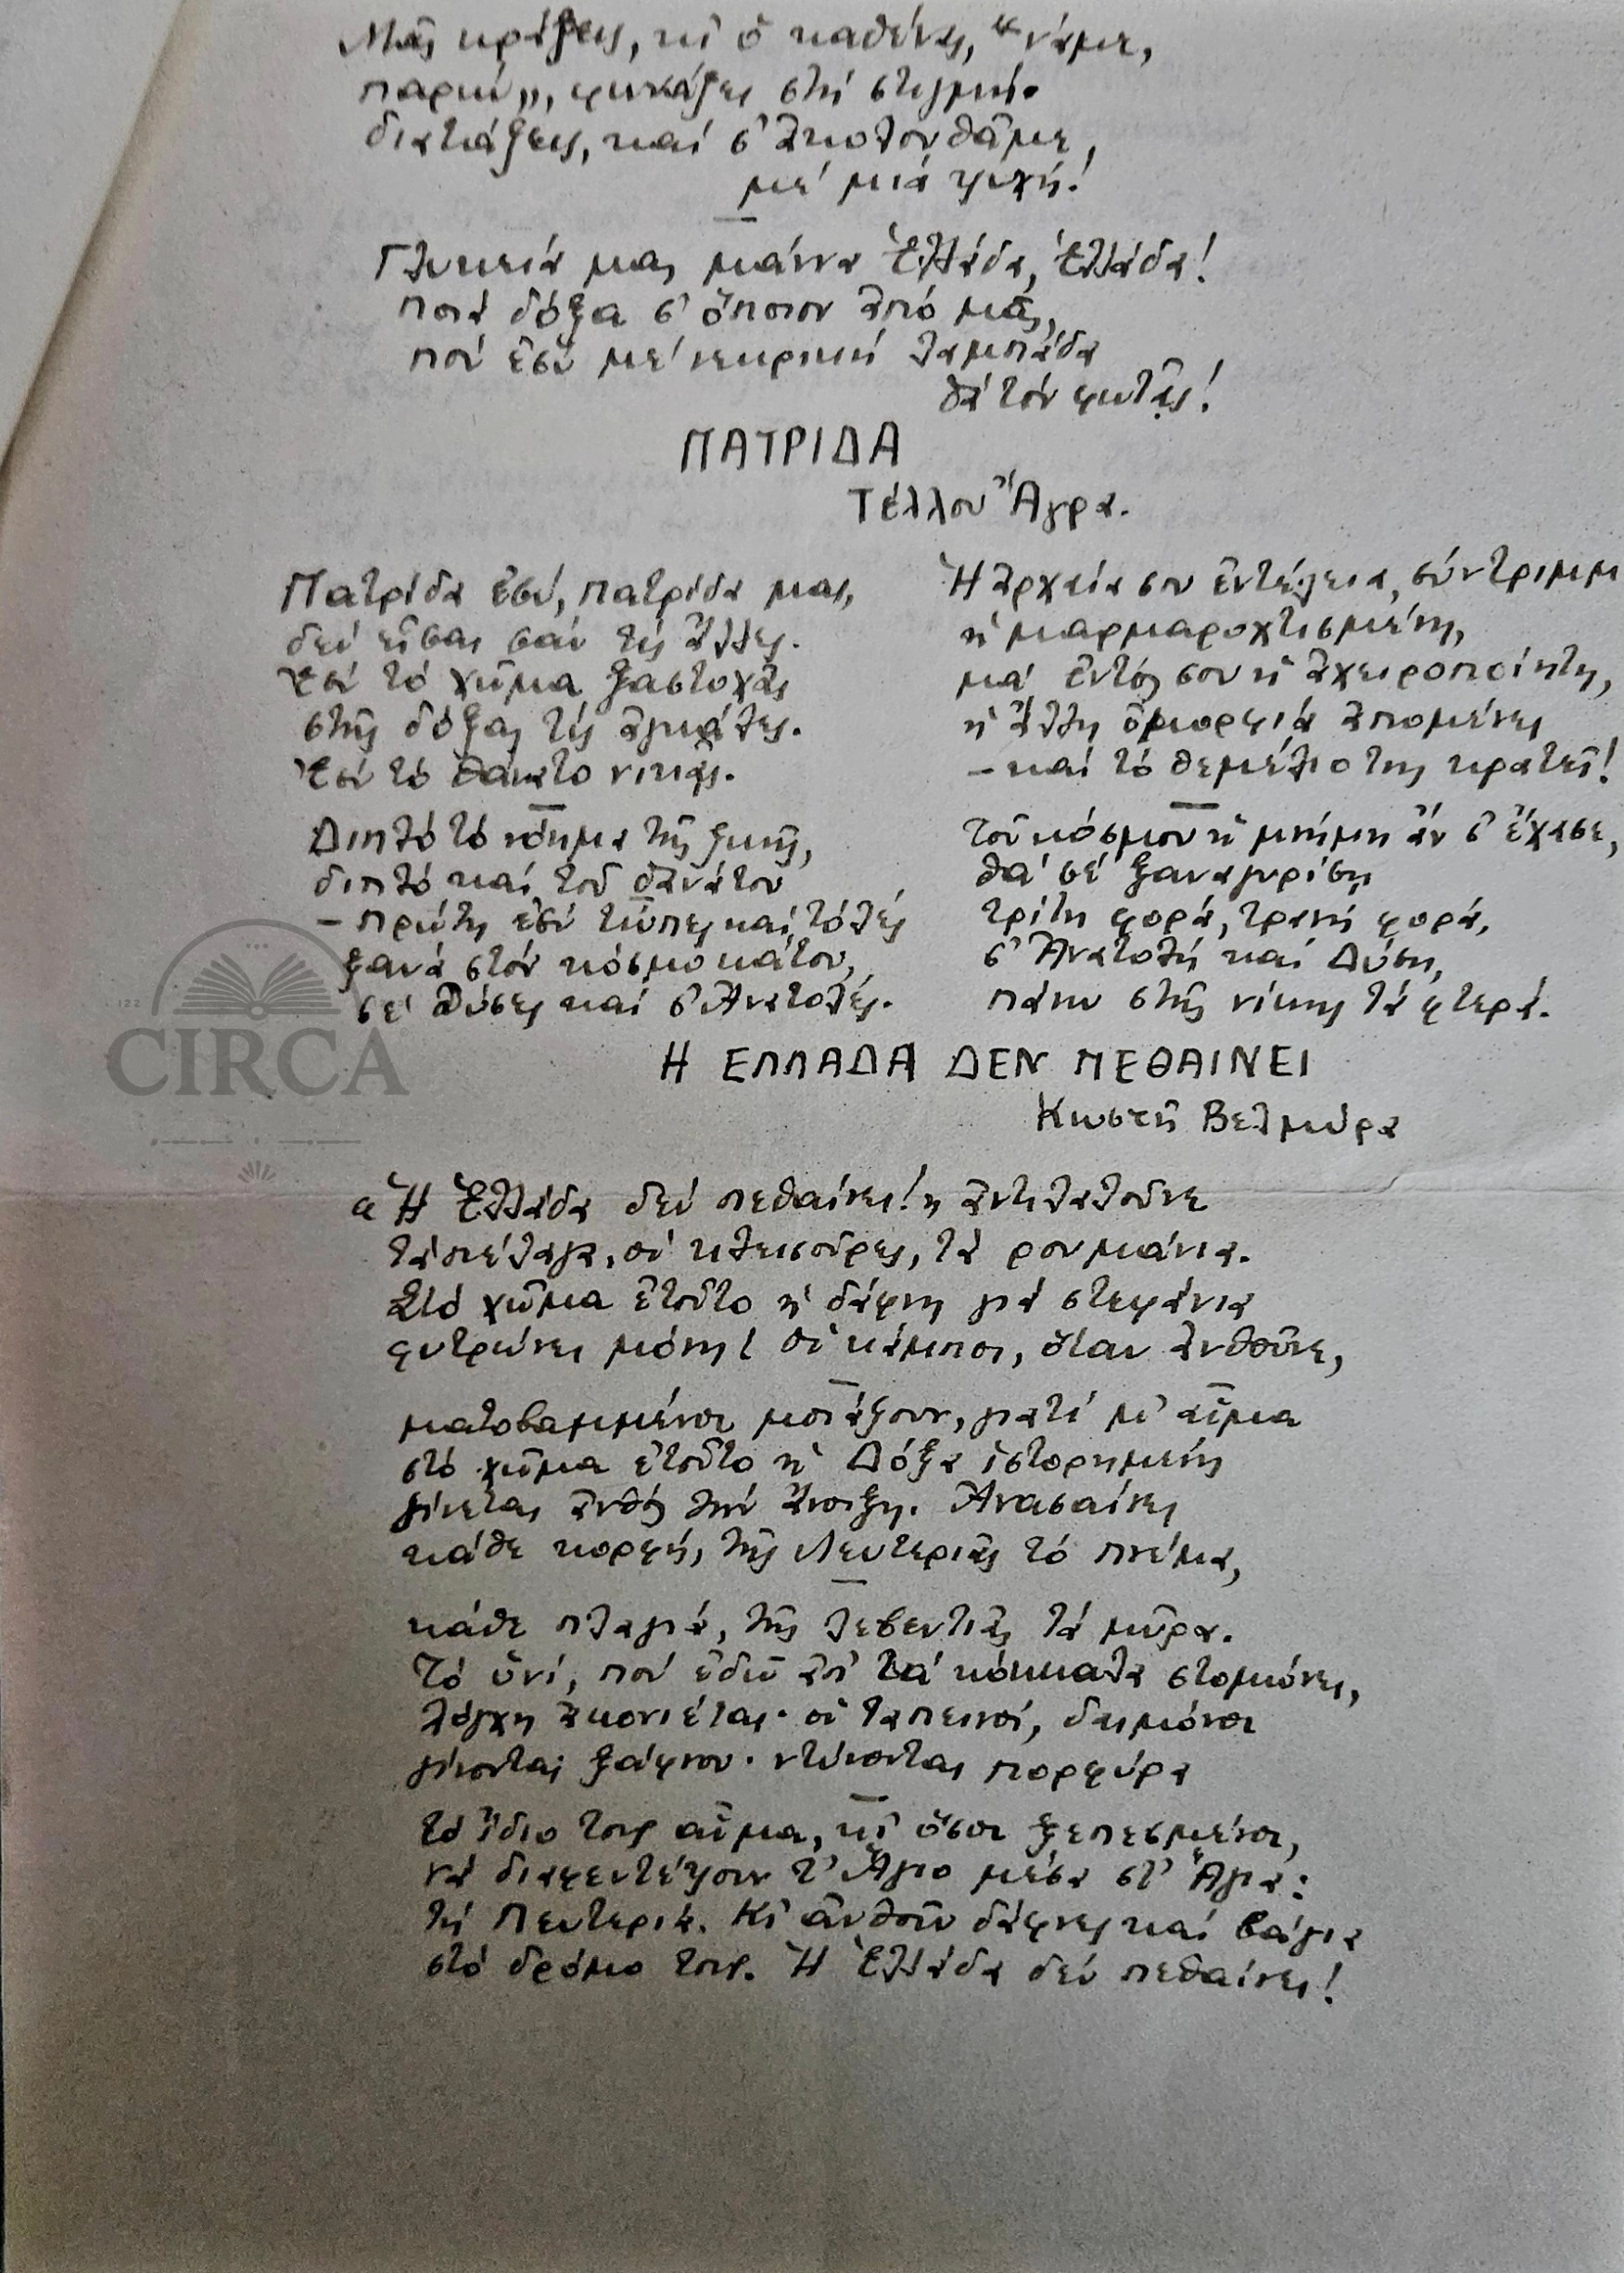 Μᾶς κράζεις, κι ὁ καθένας, "νάμε,
παρών", φωνάζει στή στιγμή·
διατάζεις, καί σ' ἀκολουθᾶμε,
μέ μιά ψυχή!
Γλυκειά μας μάννα Ἑλλάδα, Ἑλλάδα!
ποιά δόξα σ' ὅποιον ἀπό μᾶς,
πού ἐσύ μέ νεκρική λαμπάδα
θά τόν φωτᾷς!
ΠΑΤΡΙΔΑ
Τέλλου Ἄγρα.
Πατρίδα ἐσύ, πατρίδα μας,
δέν εἶσαι σάν τίς ἄλλες.
Ἐσύ τό χῶμα ξαστοχᾶς
στῆς δόξας τίς ἀγκάλες.
Ἐσύ τό θάνατο νικᾷς.
Διπλό τό νόημα τῆς ζωῆς,
διπλό καί τοῦ θανάτου
– πρώτη ἐσύ τὤπες καί τότες
ξανά στόν κόσμο κάτου,
σέ Δύσες καί σ' Ἀνατολές.
Ἡ ἀρχαία σου ἐντέλεια, σύντριμμ
ἡ μαρμαροχτισμένη,
μά ἐντός σου ἡ ἀχειροποίητη,
ἡ ἄλλη ὀμορφιά ἀπομένει
– καί τό θεμέλιο της κρατεῖ!
Τοῦ κόσμου ἡ μνήμη ἄν σ' ἔχασε,
θά σέ ξαναγυρίσῃ
τρίτη φορά, τρανή φορά,
σ' Ἀνατολή καί Δύση,
πάνω στῆς νίκης τά φτερά.
Η ΕΛΛΑΔΑ ΔΕΝ ΠΕΘΑΙΝΕΙ
Κωστῆ Βελμύρα
«Ἡ Ἑλλάδα δέν πεθαίνει!» ἀντιλαλοῦνε
τά πέλαγα, οἱ κλεισοῦρες, τά ρουμάνια.
Στό χῶμα ἐτοῦτο ἡ δάφνη γιά στεφάνια
φυτρώνει μόνη! Οἱ κάμποι, ὅταν ἀνθοῦνε,
ματοβαμμένοι μοιάζουν, γιατί μ' αἷμα
στό χῶμα ἐτοῦτο ἡ Δόξα ἱστορημένη
γίνεται ἀνθός τήν ἄνοιξη. Ἀνασαίνει
κάθε κορφή, τῆς Λευτεριᾶς τό πνέμα,
κάθε πλαγιά, τῆς λεβεντιᾶς τά μῦρα.
Τό ὑνί, πού ἐδῶ ἀπ' τά κόκκαλα στομώνει,
λόγχη ἀκονιέται· οἱ ταπεινοί, δαιμόνοι
γίνονται ξάφνου· ντύνονται πορφύρα
τό ἴδιο τους αἷμα, κι ὅσοι ξεπεσμένοι,
νά διαφεντέψουν τ' Ἅγιο μέσα στ' Ἅγια:
τή Λευτεριά. Κι ἀνθοῦν δάφνες καί βάγια
στό δρόμο τους. Ἡ Ἑλλάδα δέν πεθαίνει!
CIRCA